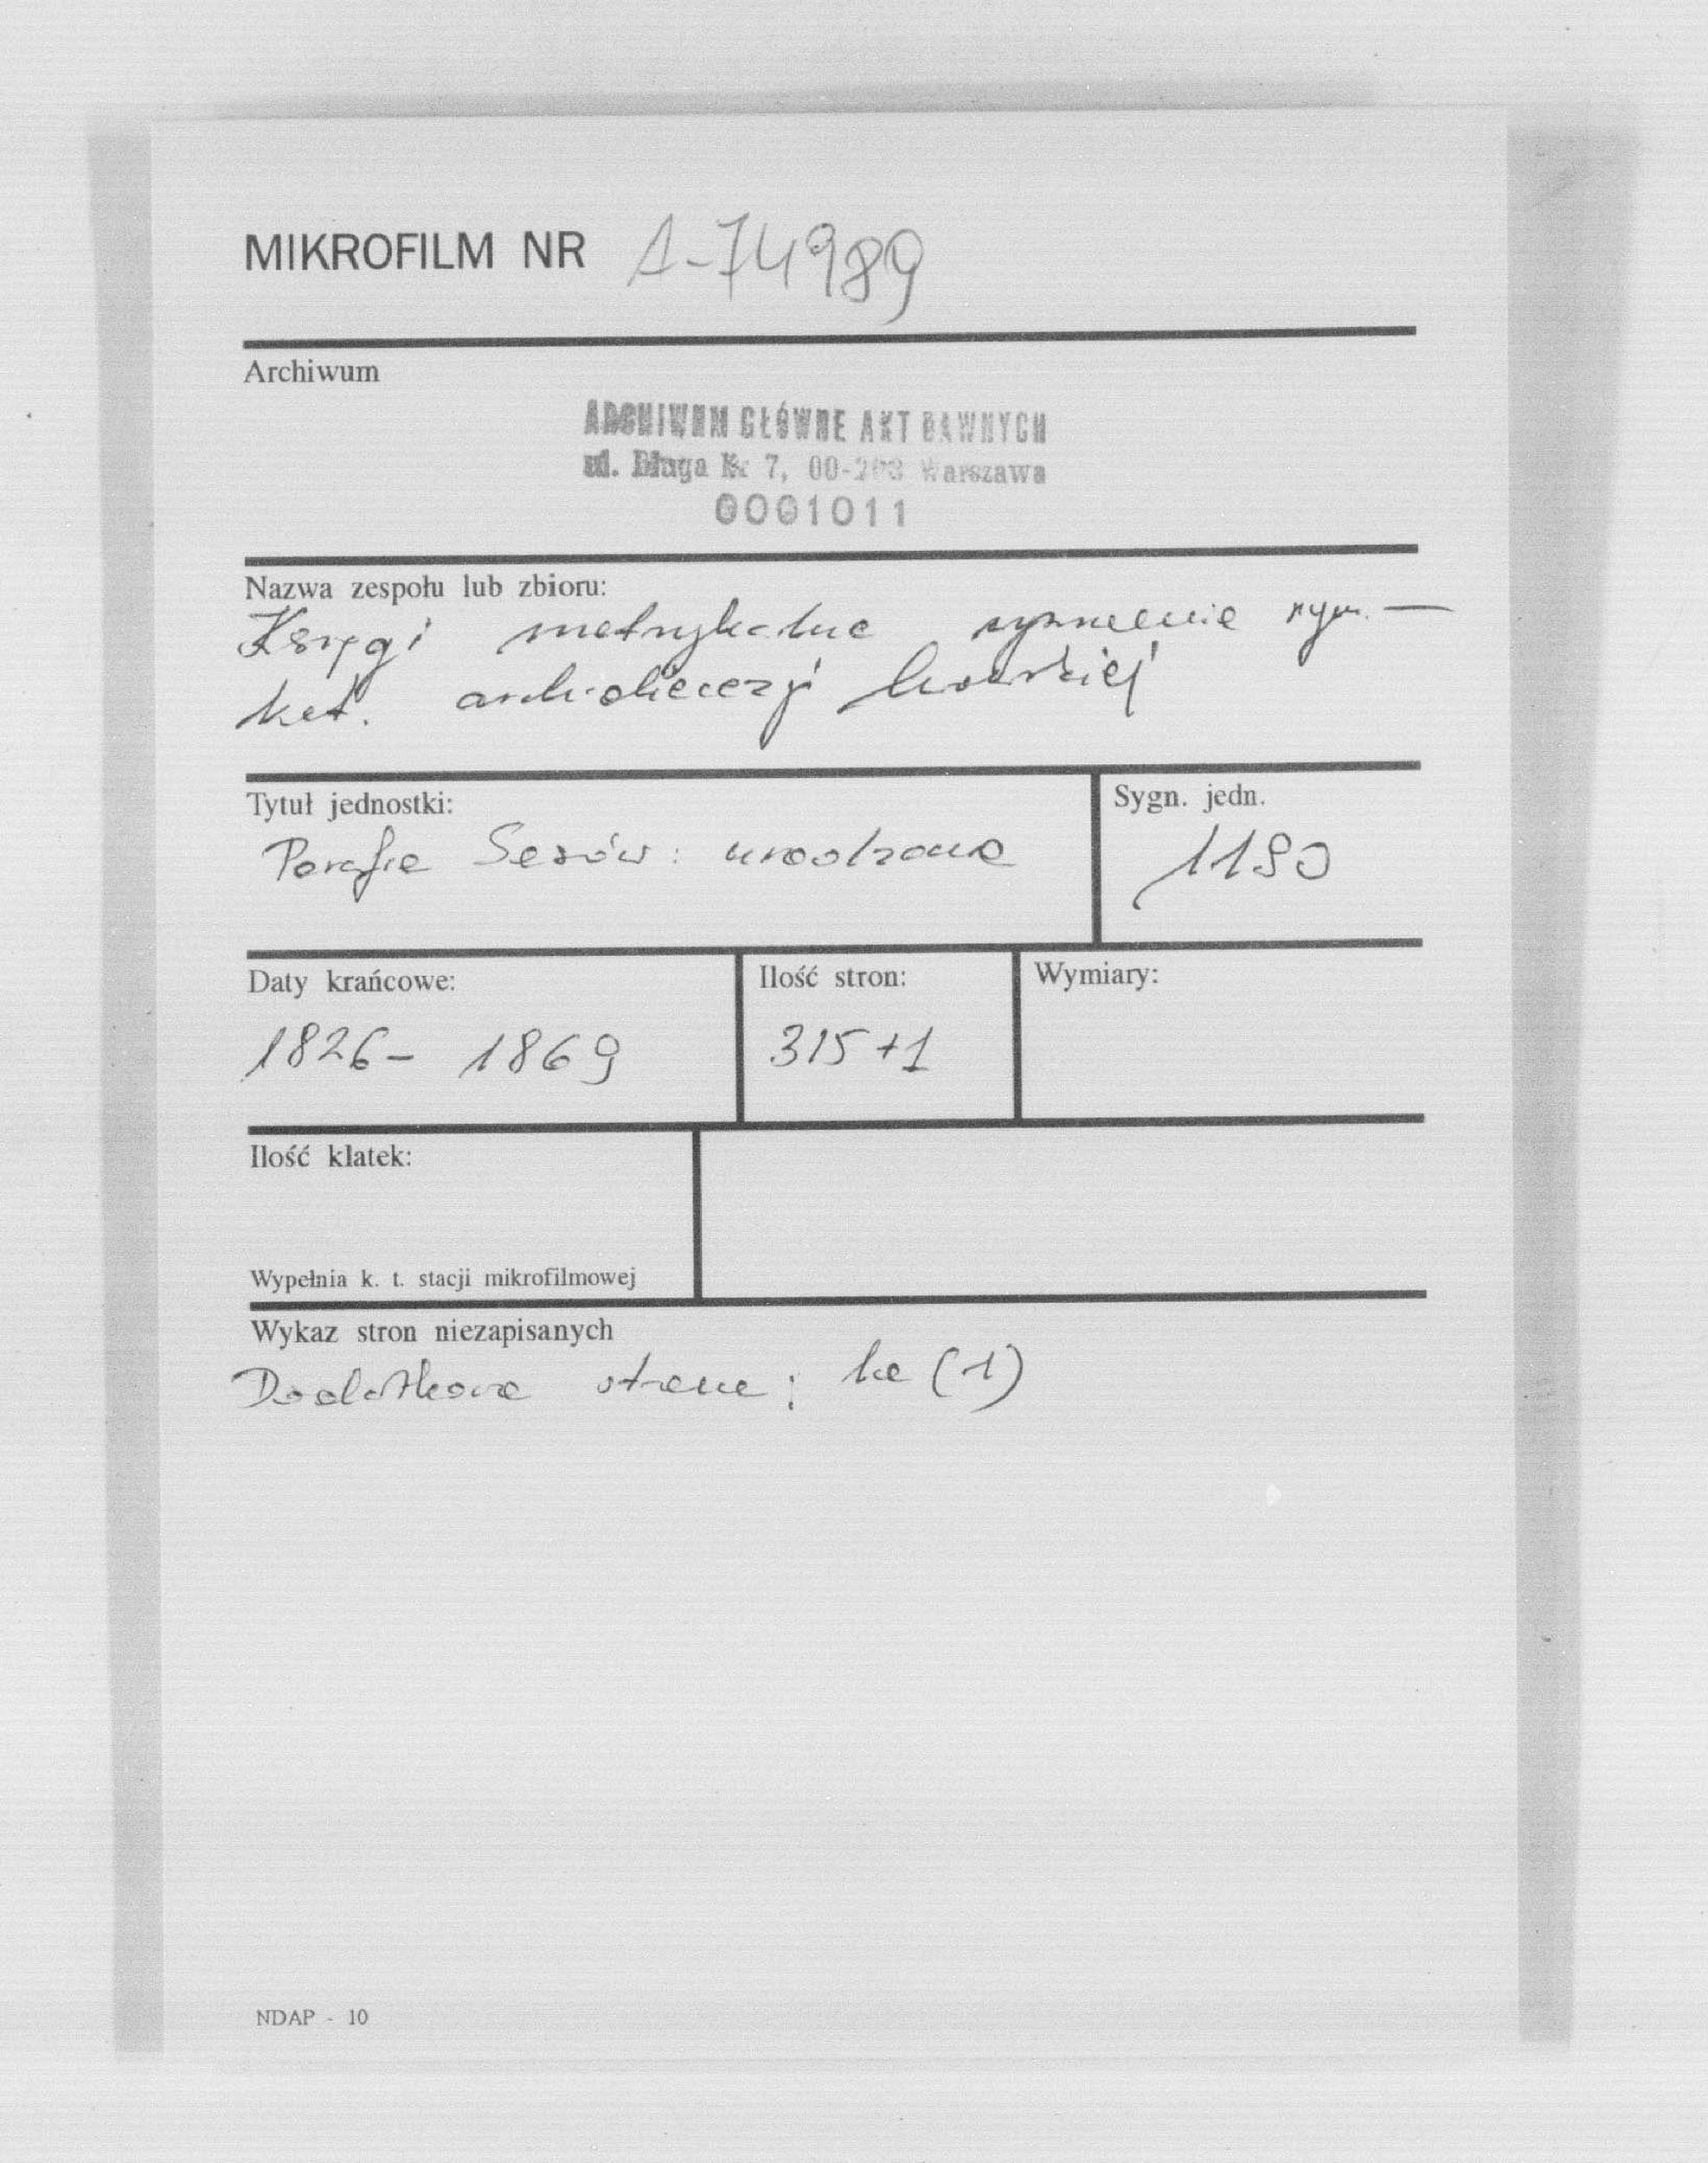 MIKROFILM NR A-74989
Archiwum
ARCHIWUM GŁÓWNE AKT DAWNYCH
ul. Długa Nr 7, 00-208 Warszawa
0001011
Nazwa zespołu lub zbioru:
Księgi metrykalne wyznania rzym.-
kat. archidiecezji lwowskiej
Tytuł jednostki:
Sygn. jedn.
Parafia Sasów: urodzone
1190
Daty krańcowe:
Ilość stron:
Wymiary:
1826- 1869
315+1
Ilość klatek:
Wypełnia k. t. stacji mikrofilmowej
Wykaz stron niezapisanych
Dodatkowa strona: (1)
NDAP - 10